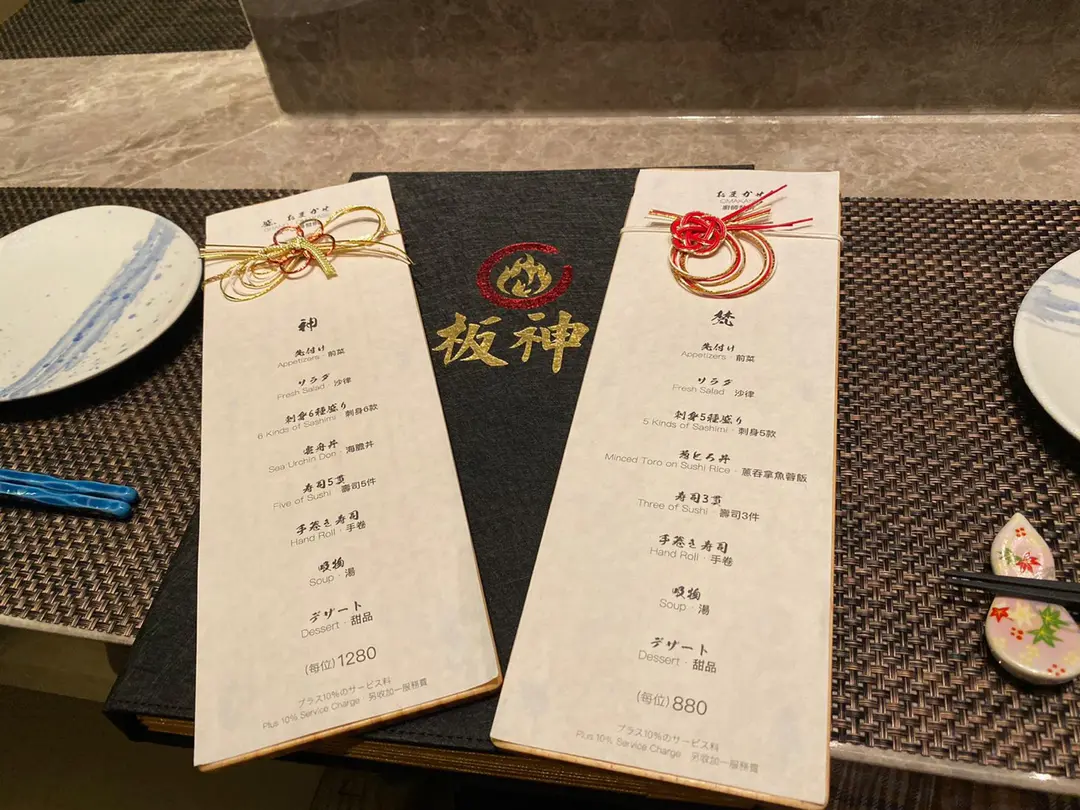 おまかせ
神
先付け
Appetizers · 前菜
サラダ
Fresh Salad · 沙律
刺身6種盛り
6 Kinds of Sashimi · 刺身6款
雲舟丼
Sea Urchin Don · 海膽丼
寿司5貫
Five of Sushi · 壽司5件
手巻き寿司
Hand Roll · 手卷
吸物
Soup · 湯
デザート
Dessert · 甜品
(每位) 1280
プラス10%のサービス料
Plus 10% Service Charge 另收加一服務費
板神
おまかせ
OMAKASE
梵
先付け
Appetizers · 前菜
サラダ
Fresh Salad 沙律
刺身5種盛り
5 Kinds of Sashimi · 刺身5款
葱とろ丼
Minced Toro on Sushi Rice · 蔥吞拿魚蓉飯
寿司3貫
Three of Sushi · 壽司3件
手巻き寿司
Hand Roll · 手卷
吸物
Soup · 湯
デザート
Dessert · 甜品
(每位) 880
プラス10%のサービス料
Plus 10% Service Charge 另收加一服務費